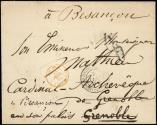 à Besançon
Son Eminence Monseigneur
Mathieu
Cardinal Archevêque
à Besançon de Grenoble
en son palais Grenoble